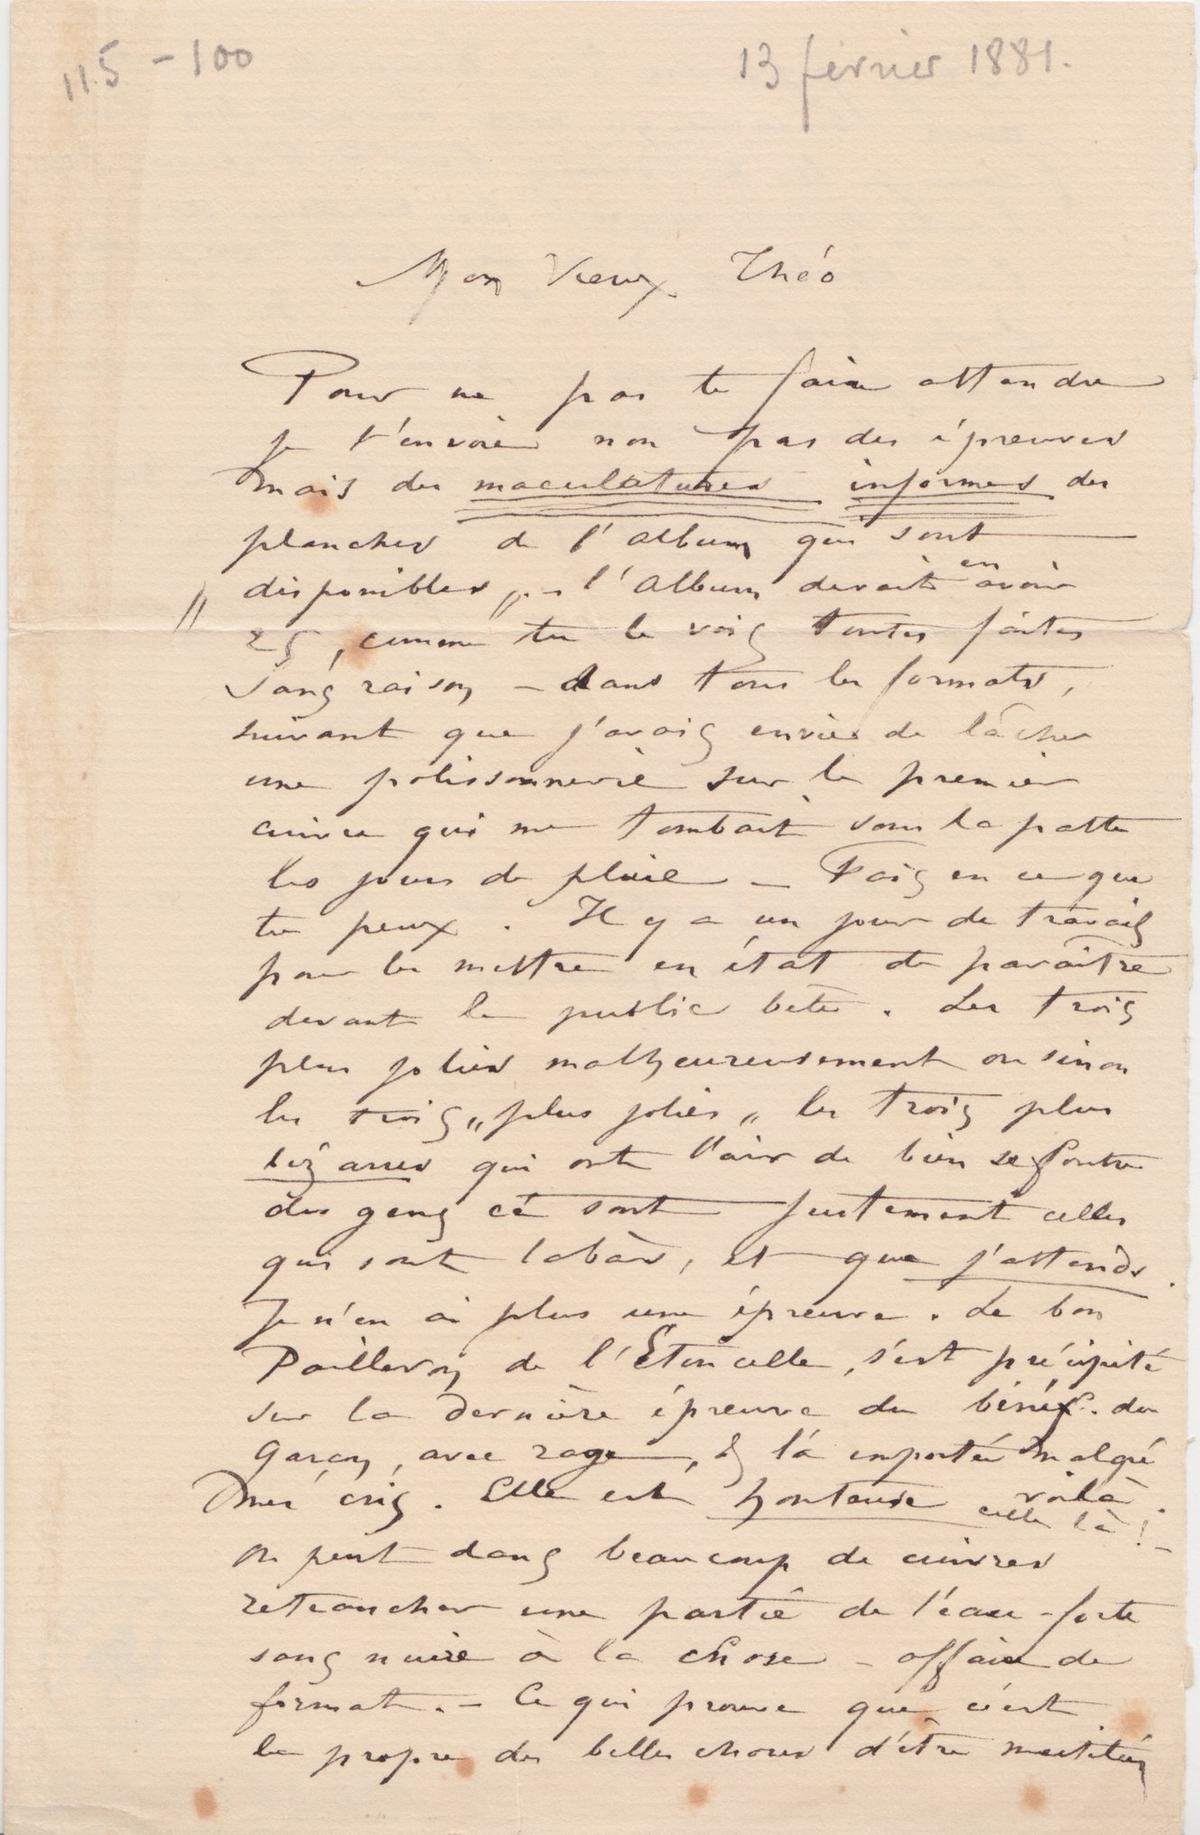 115 - 100
13 février 1881.
Mon Vieux Théo
Pour ne pas te faire attendre
je t'envoie non pas des épreuves
mais des maculatures informes des
planches de l'album qui sont
disponibles „ - l'album devait en avoir
25, comme tu le vois toutes faites
sans raison - dans tous les formats,
suivant que j'avais envie de lâcher
une polissonnerie sur le premier
cuivre qui me tombait sous la patte
les jours de pluie - Fais en ce que
tu peux. Il y a un jour de travail
pour les mettre en état de paraître
devant le public bête. Les trois
plus jolies malheureusement ou sinon
les trois „ plus jolies „ les trois plus
bizarres qui ont l'air de bien se foutre
des gens ce sont justement celles
qui sont labàs, et que j'attends.
Je n'en ai plus une épreuve. Le bon
Pailleron de l'Etincelle, s'est précipité
sur la dernière épreuve du bénéf. du
Garçon, avec rage, & l'a emportée malgré
mes cris. Elle est honteuse celle là ! voilà.
On peut dans beaucoup de cuivres
retrancher une partie de l'eau-forte
sans nuire à la chose - affaire de
format. - Ce qui prouve que c'est
le propre des belles choses d'être mutilées